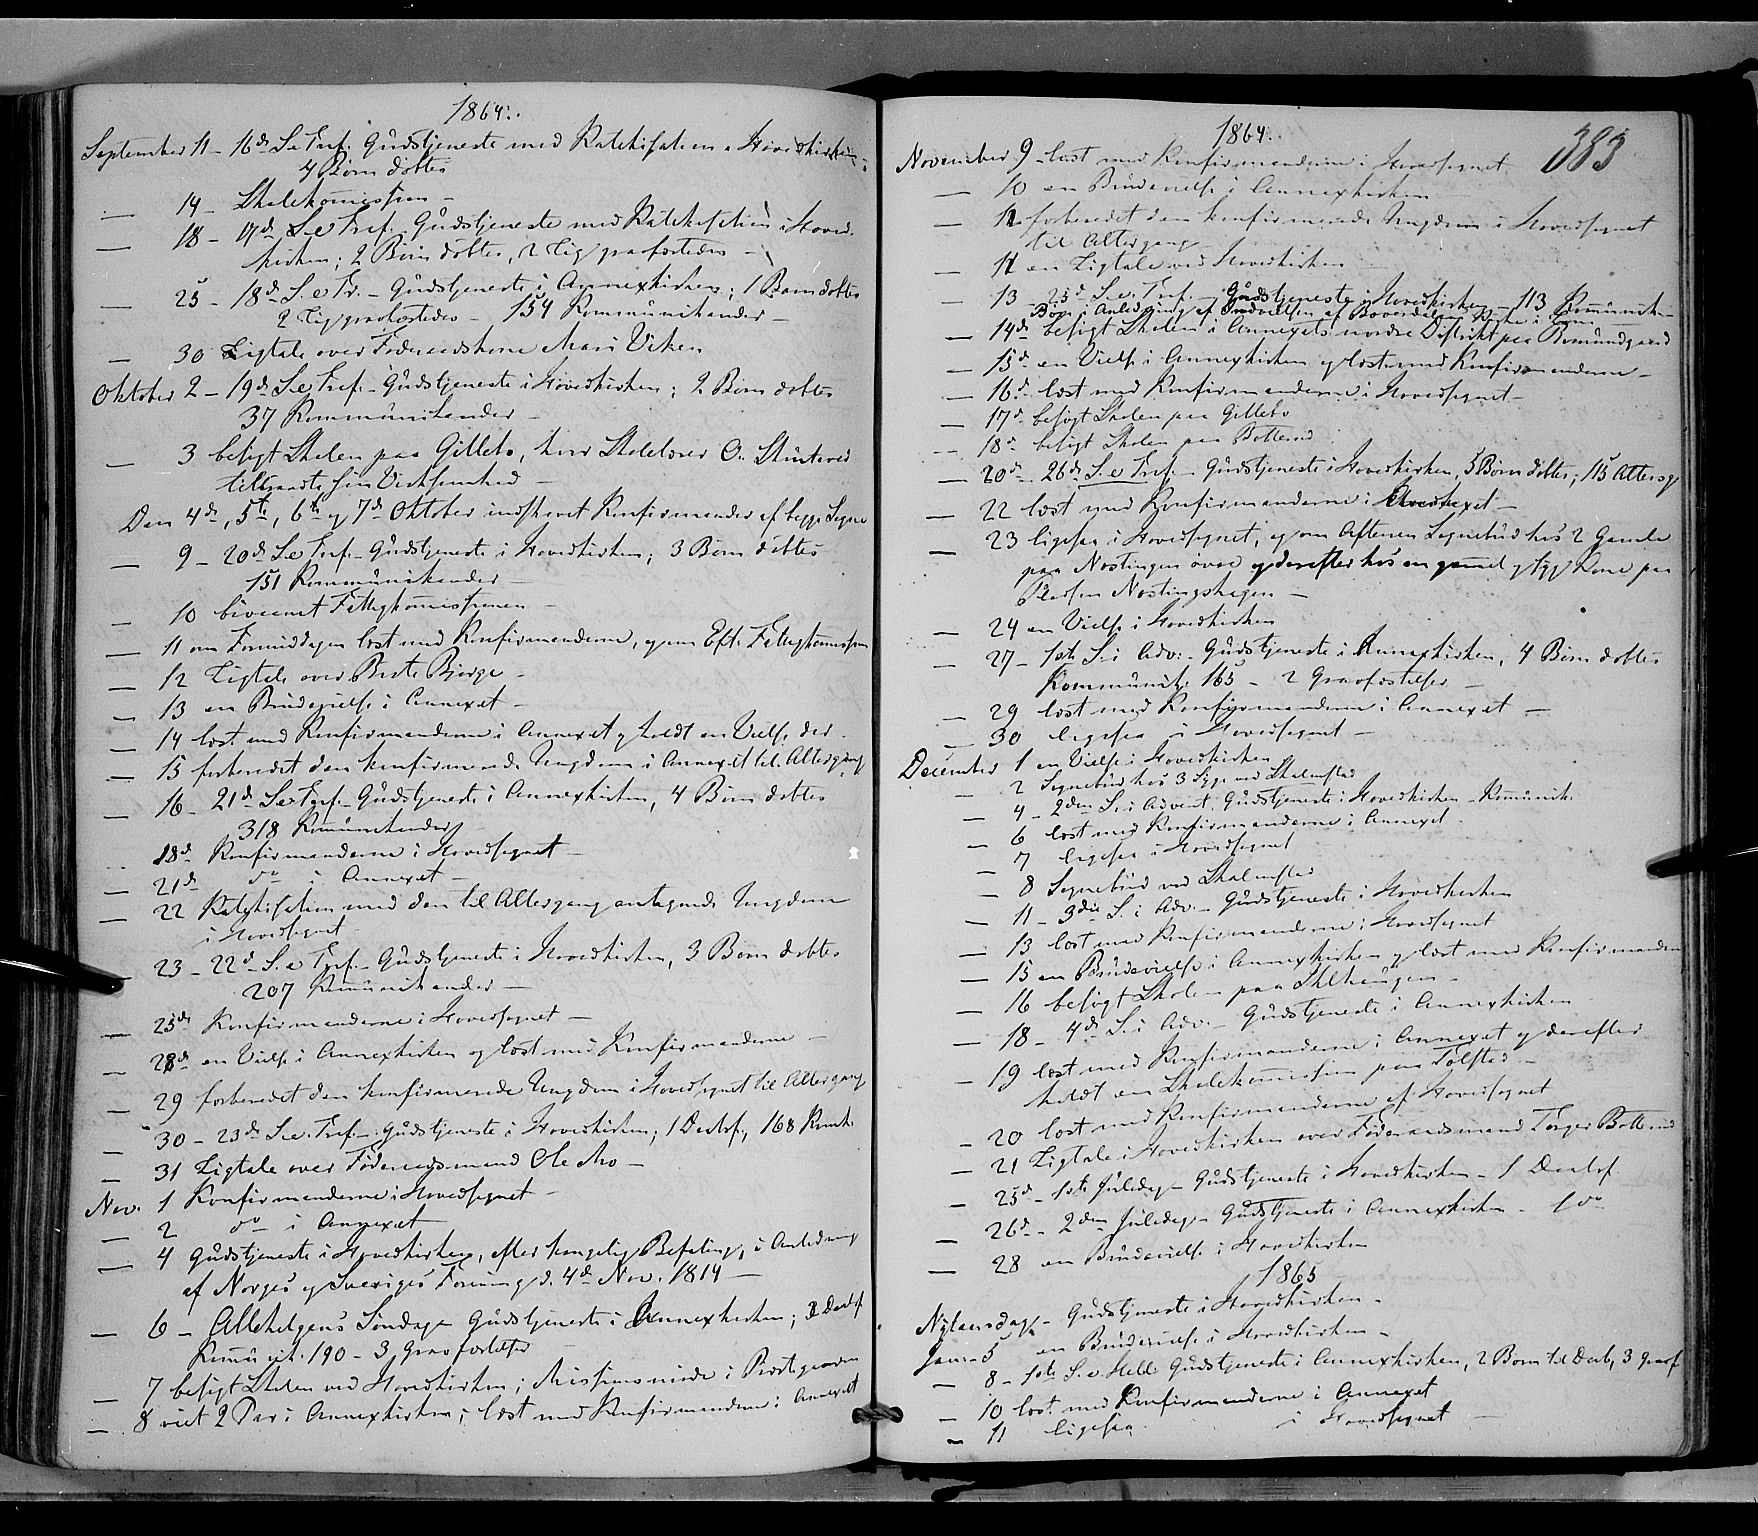 1864.
September 11 - 16de S. e. Tref. Gudstjeneste med Katekisation i Hovedkirken;
4 Børn døbtes
— 14 - Skolekommission -
— 18 - 17de S. e. Tref. Gudstjeneste med Katekisation i Hoved-
kirken; 2 Børn døbtes, 2 Lig gravfæstedes -
— 25 - 18de S. e. Tr. - Gudstjeneste i Annexkirken; 1 Barn døbtes
2 Lig gravfæstedes - 154 Kommunikander -
— 30 Ligtale over Føderaadskone Mari Viken
Oktober 2 - 19de S. e. Tref. - Gudstjeneste i Hovedkirken; 2 Børn døbtes
37 Kommunikander -
— 3 besøgt Skolen paa Gillebo, hvor Skolelærer O.
tiltraadte sin Virksomhed -
Den 4de, 5te, 6te og 7de Oktober indskrevet Konfirmander af begge Sogne
— 9 - 20de S. e. Tref. - Gudstjeneste i Hovedkirken; 3 Børn døbtes
151 Kommunikander -
— 10 bivaanet Fattigkommissionen -
— 11 om Formiddagen læst med Konfirmanderne, og om Eft. Fattigkommission
— 12 Ligtale over Berte Bjerge -
— 13 en Brudevielse i Annexet -
— 14 læst med Konfirmanderne i Annexet og holdt en Vielse der -
— 15 forberedet den konfirmerede Ungdom i Annexet til Altergang
— 16 - 21de S. e. Tref. - Gudstjeneste i Annexkirken, 4 Børn døbtes
318 Kommunikander
— 18de Konfirmanderne i Hovedsognet -
— 21de do i Annexet -
— 22 Katekisation med den til Altergang antagende Ungdom
i Hovedsognet -
— 23 - 22de S. e. Tref. - Gudstjeneste i Hovedkirken, 3 Børn døbtes
207 Kommunikander -
— 25de Konfirmanderne i Hovedsognet -
— 28de en Vielse i Annexkirken og læst med Konfirmanderne -
— 29 forberedet den konfirmerede Ungdom i Hovedsognet til Altergang
— 30 - 23de S. e. Tref. - Gudstjeneste i Hovedkirken; 1 Barn, 168 Komk.
— 31 Ligtale over Føderaadsmand Ole Mo -
Nov. 1 Konfirmanderne i Hovedsognet -
— 2 do i Annexet
— 4 Gudstjeneste i Hovedkirken, efter kongelig Befaling, i Anledning
af Norges og Sveriges Forening d. 4de Nov. 1814 -
— 6 - Allehelgens Søndag - Gudstjeneste i Annexkirken;
Kommunik. 190 - 3 Gravfæstelser
— 7 besøgt Skolen ved Hovedkirken; Missionsmøde i Præstegaarden
— 8 viet 2 Par i Annexkirken; læst med Konfirmanderne i Annexet
1864.
383
November 9 - læst med Konfirmanderne i Hovedsognet
— 10 en Brudevielse i Annexkirken
— 12 forberedet den konfirmerede Ungdom i Hovedsognet
til Altergang -
— 11 en Ligtale ved Hovedkirken
— 13 - 25de S. e. Tref. - Gudstjeneste i Hovedkirken - 113 Kommunik. -
Bøn i Anledning af Indvielsen af
— 14de besøgt Skolen i Annexets nordre Distrikt paa Bomundgaard
— 15de en Vielse i Annexkirken og læst med Konfirmanderne -
— 16de læst med Konfirmanderne i Hovedsognet -
— 17de besøgt Skolen paa Gillebo
— 18de besøgt Skolen paa Botterud
— 20de 26de S. e. Tref. - Gudstjeneste i Hovedkirken, 5 Børn døbtes; 115 Altersg.
— 22 læst med Konfirmanderne i Annexet -
— 23 ligesaa i Hovedsognet, og om Aftenen Sognebud hos 2 Gamle
paa Nøstingen øvre og derefter hos en gammel syg Kone paa
Pladsen Nøstingshagen -
— 24 en Vielse i Hovedkirken
— 27 - 1ste S. i Adv. - Gudstjeneste i Annexkirken, 4 Børn døbtes
Kommunik. 165 - 2 Gravfæstelser -
— 29 læst med Konfirmanderne i Annexet -
— 30 ligesaa i Hovedsognet -
December 1 en Vielse i Hovedkirken
— 2 Sognebud hos 3 Syge ved Skalmstad
— 4 - 2den S. i Advent. Gudstjeneste i Hovedkirken - Kommunik.
— 6 læst med Konfirmanderne i Annexet -
— 7 ligesaa i Hovedsognet
— 8 Sognebud ved Skalmstad
— 11 - 3die S. i Adv. - Gudstjeneste i Hovedkirken
— 13 læst med Konfirmanderne i Hovedsognet
— 15 en Brudevielse i Annexkirken og læst med Konfirmanderne
— 16 besøgt Skolen paa
— 18 - 4de S. i Adv. - Gudstjeneste i Annexkirken
— 19 læst med Konfirmanderne i Annexet og derefter
holdt en Skolekommission paa Tolstad -
— 20 læst med Konfirmanderne af Hovedsognet
— 21 Ligtale i Hovedkirken over Føderaadsmand Torger Botterud
— 25de - 1ste Juledag - Gudstjeneste i Hovedkirken - 1
— 26de - 2den Juledag - Gudstjeneste i Annexkirken - 1 do
— 28 en Brudevielse i Hovedkirken
1865
Nytaarsdag - Gudstjeneste i Hovedkirken -
Janr. 5 en Brudevielse i Hovedkirken -
— 8 - 1ste S. e. Hell. Gudstjeneste i Annexkirken, 2 Børn til Daab, 3 Gravf.
— 10 læst med Konfirmanderne i Annexet
— 11 ligesaa i Hovedsognet -